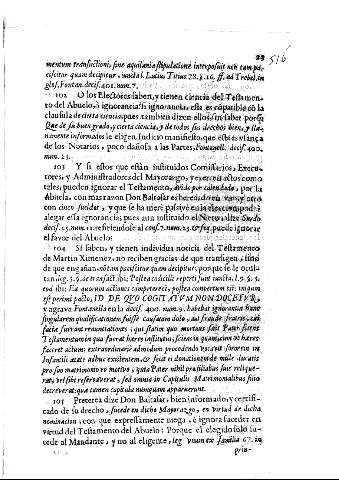 23 516
mentum transactionis sive aquiliana stipulatione interposuit non tam pa-
ciscitur quam decipitur, unde l. Lucius Titius 78. §. 16. ff. ad Trebel. in
glos. Fontan. decis. 401. num. 7.
102 O los Electores saben, y tienen ciencia del Testamen-
to del Abuelo, ò ignorancia: si ignorancia, esta es copatible cõ la
clausula de cierta ciencia, pues tambien dizen ellos, sin saber
Que de su bien grado, y cierta ciencia, y de todos sus drechos bien, y lla-
namente informados le eligen, Indicio manifiesto, que es
de los Notarios, poco dañosa à las Partes, Fontanell. decis. 400,
num. 23.
103 Y si estos que están instituidos Comissarios, Execu-
tores, y Administradores del Mayorazgo, y exerces estos como
tales, pueden ignorar el Testamento, por la
Abuela, con mas razon Don Baltasar
con cinco sueldos, y que se ha mere
alegar essa ignorancia; pues aun instituido el Nieto, dize Surdo
decis. 25. num. 11. refiriendole al cons. 7. num. 25. & seq. puede ignorar
el favor del Abuelo.
104 Si saben, y tienen individua noticia del Testamento
de Martin Ximenez, no recibas gracias de que transigen, sino
de que engañan, nõ tam paciscitur quam decipitur, porque se le ocul-
tan
tod ibi: Ea quorum actiones competenti, postea compertum est: iniquum
est perimi pacto, ID DE QVO COGITATVM NON DOCETVR,
y agrava Fontanella en la decis. 400. num. 9. habebat ignorantia hanc
singularem qualificationem fuisse causatam dolo, aut fraude fratris, cui
facta fuerant renunciationes; qui statim quo mortuus fuit Pater finxit
Testamentum in quo foret hæres institutus, sciens in quantum ut hæres
faceret actum extraordinarie admodum procedendo vocavit sororem in
Infantili ætate adhuc existentem, & fecit ei donationem de mille ducatis
pro suo matrimonio ex motivo, quia Pater nihil penitus sibi relique-
rat, vel sibi reservaverat, sed omnia in Capitulis Matrimonialibus filio
decreverat; quæ tamen capitula nunquam apparuerunt.
105 Pretexta dize Don Baltasar, bien informado, y certifi-
cado de su drecho, sucede en dicho Mayorazgo, en Virtud de dicha
nominacion; con que expressamente niega, è ignora suceder en
virtud del Testamento del Abuelo: Porque el elegido solo su-
cede al Mandante, y no al eligente, leg. unum ex familia 67. in
prin-